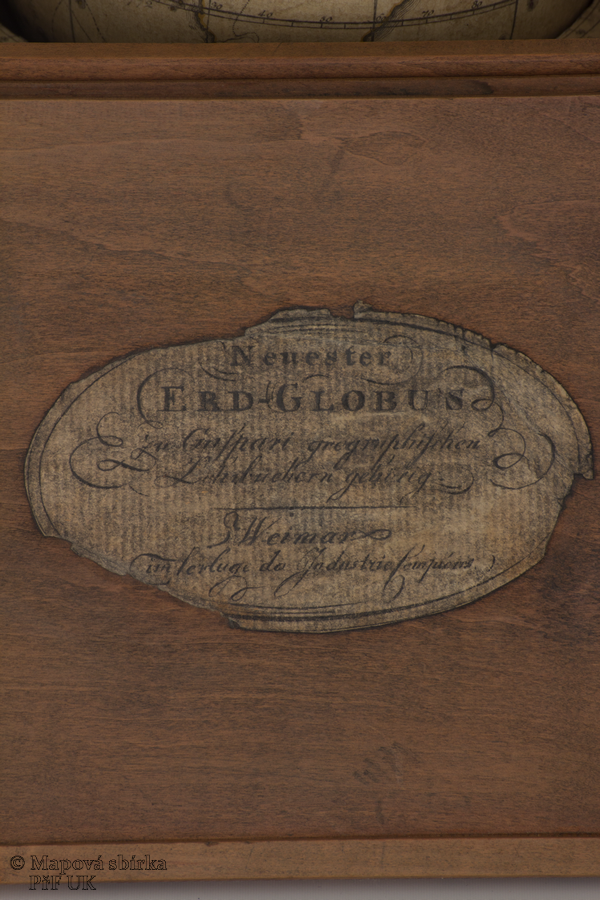 Neuester
ERD-GLOBUS
zu Gaspari geographischen
Lehrbüchern gehörig
Weimar
im Verlage des Industrie Comptoirs.
© Mapová sbírka
PřF UK